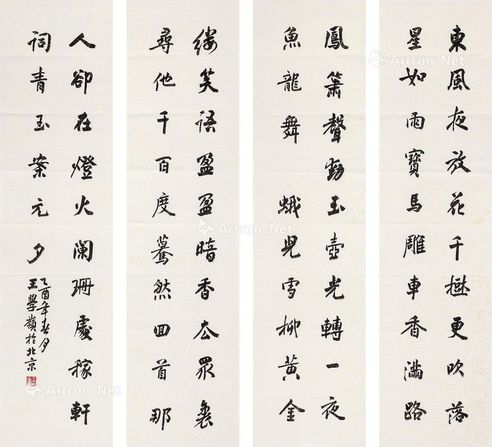 東風夜放花千樹更吹落
星如雨寶馬雕車香滿路
鳳簫聲動玉壺光轉一夜
魚龍舞蛾兒雪柳黃金
縷笑語盈盈暗香去眾裏
尋他千百度驀然回首那
人卻在燈火闌珊處稼軒
詞青玉案元夕
乙酉年春月
王學嶺於北京
Artron.Net